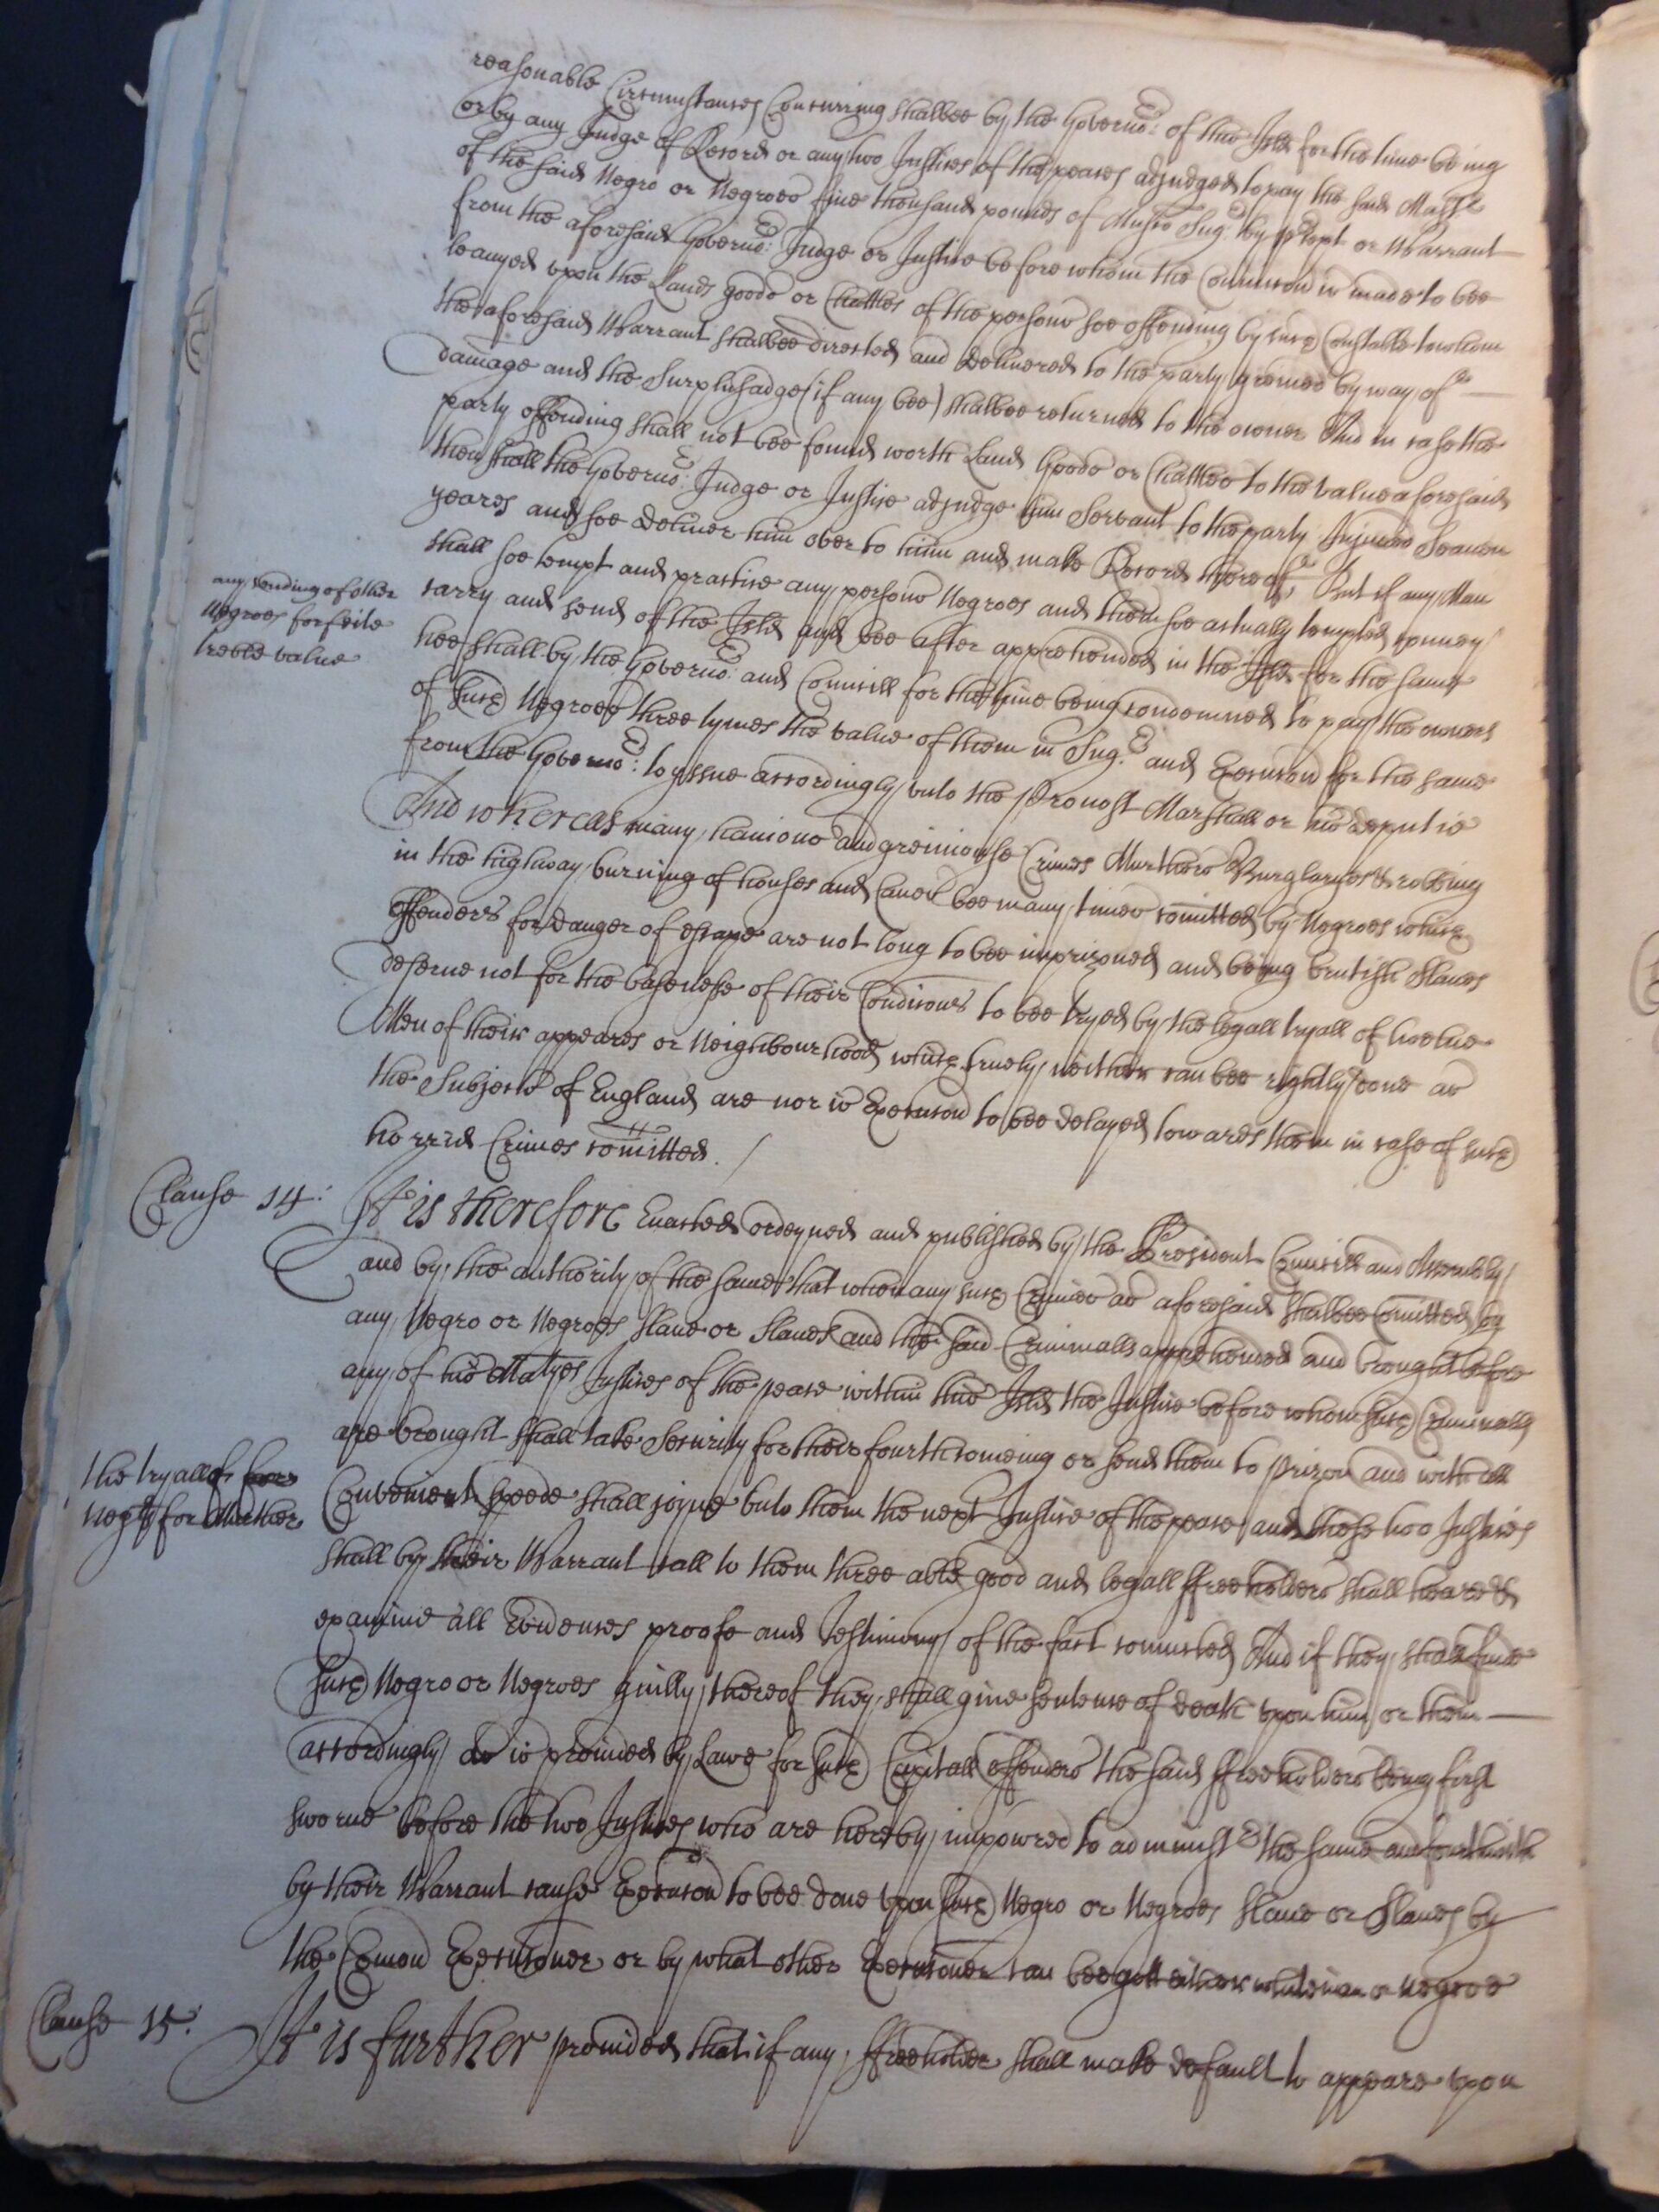 reasonable Circumstances Concurring shalbee by the Governo:r of this Isld for the time being
or by any Judge of Record or any two Justices of the peaces adjudged to pay the said Mastr
of the said Negro or Negroes five thousand pounds of Musco Sug:r by or Warrant
from the aforesaid Governo:r Judge or Justice before whom the Conviccon is made to bee
leavyed upon the Lands goods or Chattles of the persons soe offending by such Constable to whom
the aforesaid Warrant shalbee directed and delivered to the party grieved by way of
damage and the Surplusadge (if any bee) shalbee returned to the owner And in case the
party offending shall not bee found worth Land Goods or Chattles to the value aforesaid
then shall the Governo:r Judge or Justice adjudge him Servant to the party Injured Seaven
yeares and soe deliver him over to him and make Record thereof, But if any Man
shall soe tempt and practise any persons Negroes and them soe actually tempted convey
any sending of other
Negroes forfeits
treble value
carry and send of the Isld and bee after apprehended in the Isld for the same
hee shall by the Governo:r and Councill for the time being condemned to pay the owners
of such Negroes three tymes the value of them in Sug:r and Execucon for the same
from the Governo:r to yssue accordingly unto the Provost Marshall or his deputie
And whereas many hanious and greiviouse Crimes Murthers Burglaryes & robbing
in the highway burning of houses and Canes bee many times comitted by Negroes which
offenders for danger of escape are not long to bee imprizoned and being brutish Slaves
deserve not for the basenesse of their Condicons to bee tryed by the legall tryall of twelve
Men of their appeares or Neighbourhood which truely neither can bee rightly done as
the Subjects of England are nor is Execucon to bee delayed towards them in case of such
horrid Crimes comitted.
Clause 14:
It is therefore Enacted ordeyned and published by the President Councill and Assembly
and by the authority of the same that when any such Crimes as aforesaid shalbee Comitted by
any Negro or Negroes Slave or Slaves and the said Criminalls apprehended and brought before
any of his Matyes Justices of the peace within this Isld the Justice before whom such Criminalls
are brought shall take Security for their fourthcomeing or send them to prizon and with all
the tryall of
Neg:s for Murther
Convenient speede shall joyne unto them the next Justice of the peace and these two Justices
shall by their Warrant call to them three able good and legall ffreeholders shall heare &
examine all Evidences proofe and Testimony of the fact comitted And if they shall finde
such Negro or Negroes guilty thereof they shall give sentence of death upon him or them
accordingly as is provided by Lawe for such Capitall offenders the said ffreeholders being first
sworne before the two Justices who are hereby impowred to administr the same and fourthwith
by their Warrant cause Execucon to bee done upon such Negro or Negroes Slave or Slaves by
the Comon Execusoner or by what other Execusoner can bee gott either white man or Negroe
Clause 15:
It is further provided that if any ffreeholder shall make default to appeare upon